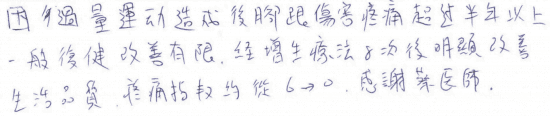 因為過量運动造成後腳跟傷害疼痛超过半年以上
一般復健改善有限,经增生療法8次後明顯改善
生活品質,疼痛指数約從6→0.感謝葉医師.